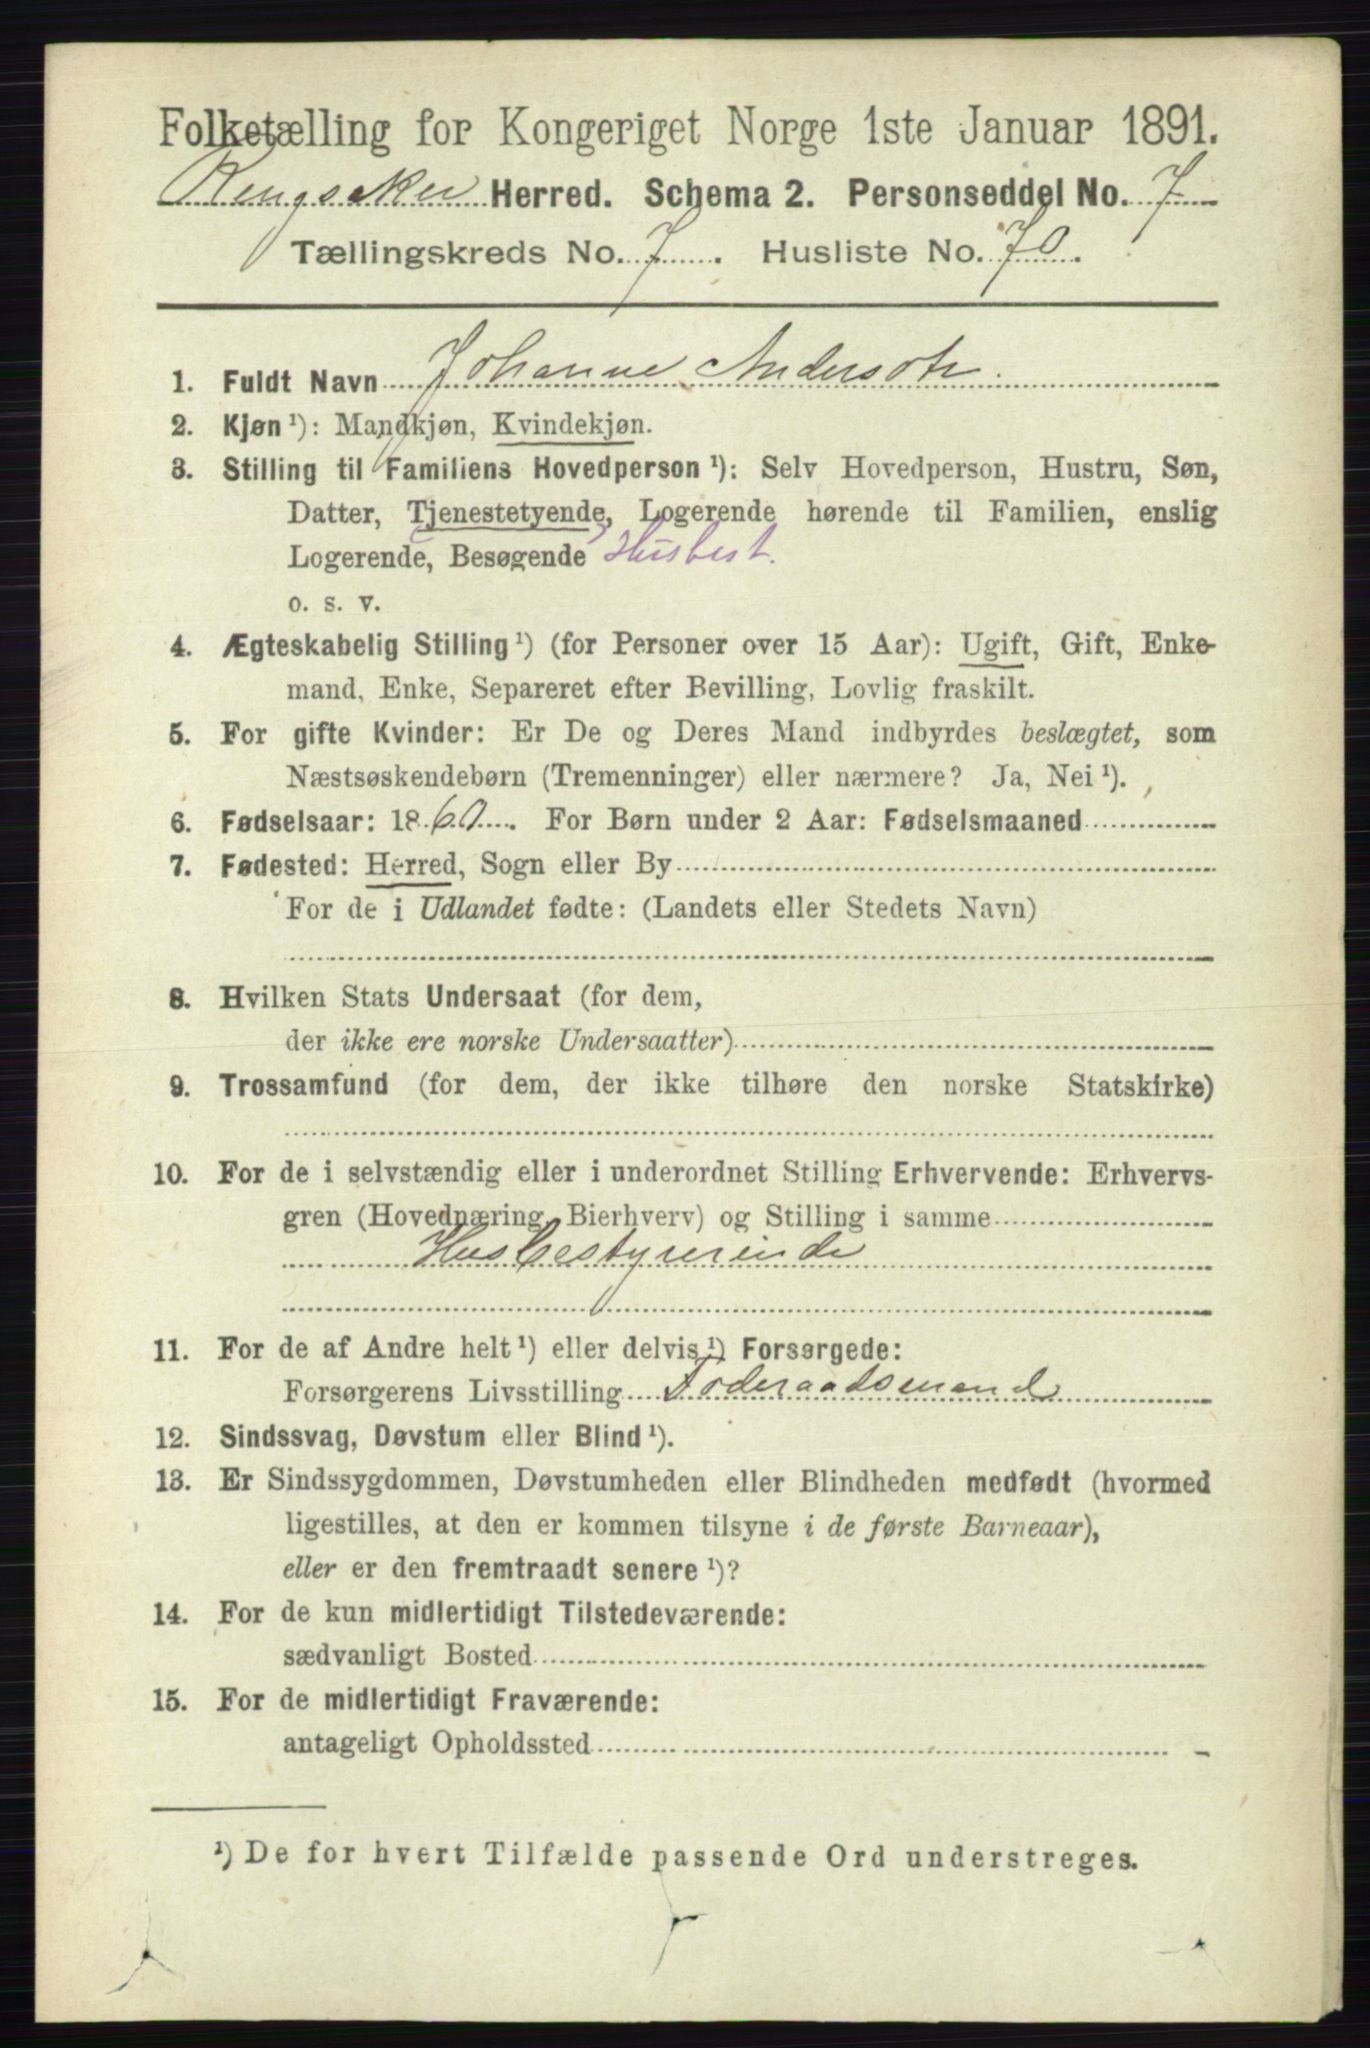 Folketælling for Kongeriget Norge 1ste Januar 1891.
Ringsaker Herred. Schema 2. Personseddel No. 7
Tællingskreds No. 7. Husliste No. 70.
1. Fuldt Navn Johanne Andersdtr.
2. Kjøn ¹): Mandkjøn, Kvindekjøn.
3. Stilling til Familiens Hovedperson ¹): Selv Hovedperson, Hustru, Søn,
Datter, Tjenestetyende, Logerende hørende til Familien, enslig
Logerende, Besøgende Husbest.
o. s. v.
4. Ægteskabelig Stilling ¹) (for Personer over 15 Aar): Ugift, Gift, Enke-
mand, Enke, Separeret efter Bevilling, Lovlig fraskilt.
5. For gifte Kvinder: Er De og Deres Mand indbyrdes beslægtet, som
Næstsøskendebørn (Tremenninger) eller nærmere? Ja, Nei ¹).
6. Fødselsaar: 1860. For Børn under 2 Aar: Fødselsmaaned
7. Fødested: Herred, Sogn eller By
For de i Udlandet fødte: (Landets eller Stedets Navn)
8. Hvilken Stats Undersaat (for dem,
der ikke ere norske Undersaatter)
9. Trossamfund (for dem, der ikke tilhøre den norske Statskirke)
10. For de i selvstændig eller i underordnet Stilling Erhvervende: Erhvervs-
gren (Hovednæring, Bierhverv) og Stilling i samme
Husbestyrerinde
11. For de af Andre helt ¹) eller delvis ¹) Forsørgede:
Forsørgerens Livsstilling Føderaadsmand
12. Sindssvag, Døvstum eller Blind ¹).
13. Er Sindssygdommen, Døvstumheden eller Blindheden medfødt (hvormed
ligestilles, at den er kommen tilsyne i de første Barneaar),
eller er den fremtraadt senere ¹)?
14. For de kun midlertidigt Tilstedeværende:
sædvanligt Bosted
15. For de midlertidigt Fraværende:
antageligt Opholdssted
¹) De for hvert Tilfælde passende Ord understreges.